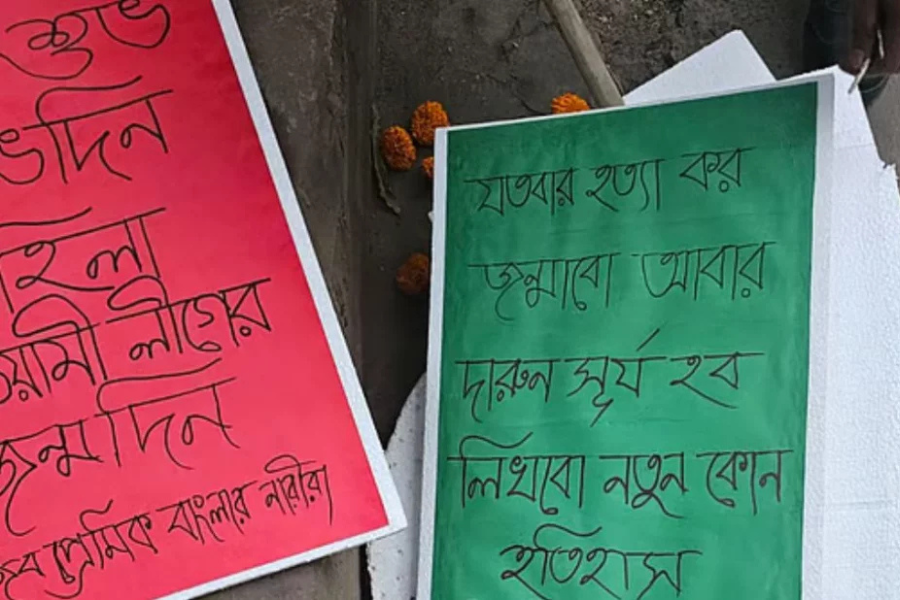 শুভ
দিন
লীগের
জন্মদিন
প্রেমিক বাংলার নারীরা
যতবার হত্যা কর
জন্মাবো আবার
দারুন সূর্য হব
লিখবো নতুন কোন
ইতিহাস